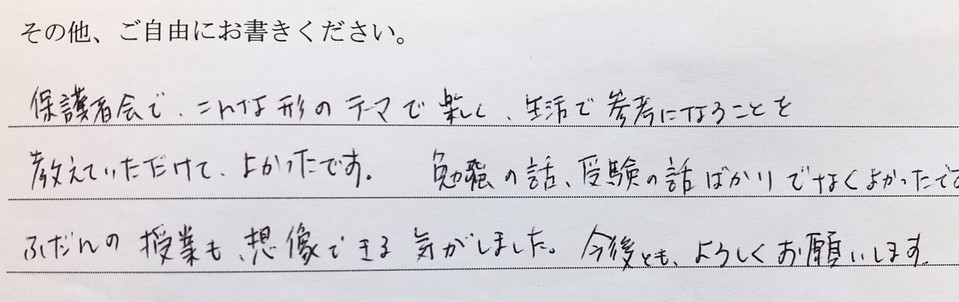 その他、ご自由にお書きください。
保護者会で、こんな形のテーマで楽しく、生活で参考になることを
教えていただけて、よかったです。 勉強の話、受験の話ばかりでなくよかったで
ふだんの授業も、想像できる気がしました。今後とも、よろしくお願いします。